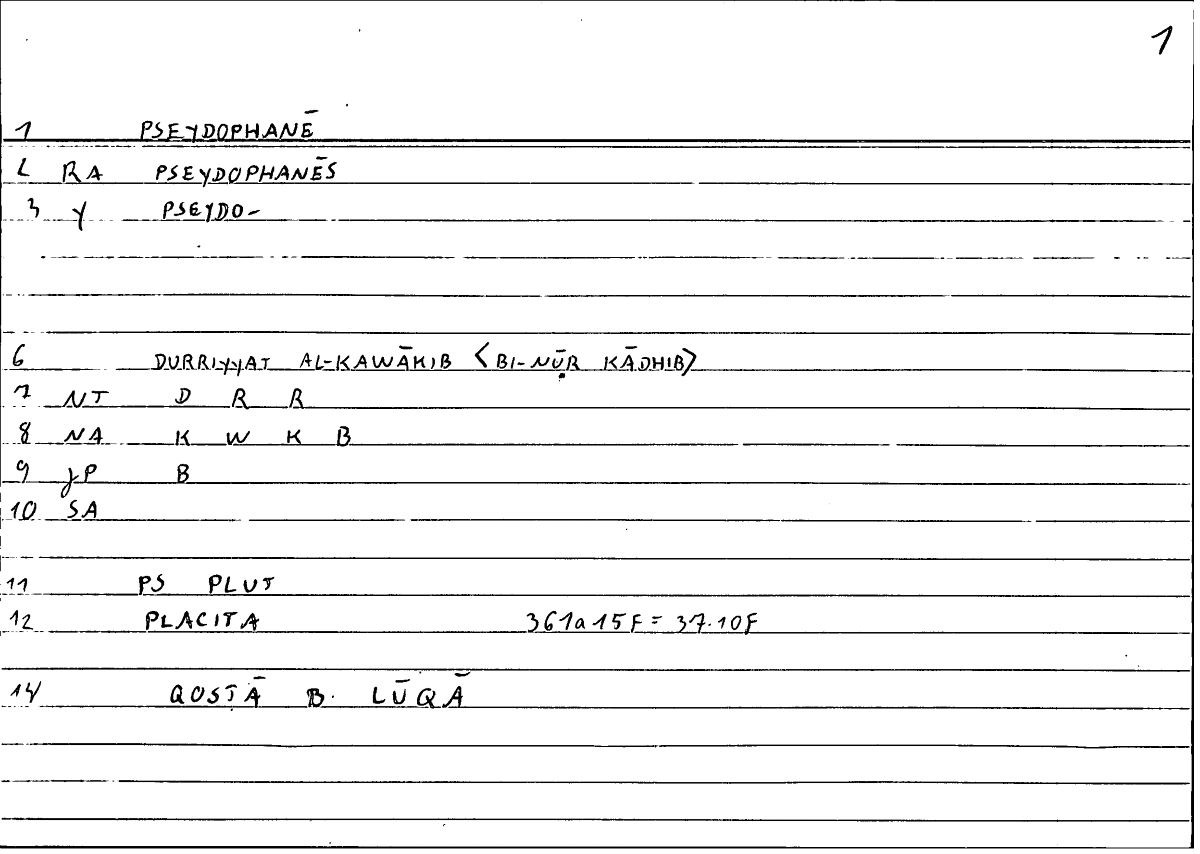 1
1 PSEYDOPHANĒ
2 RA PSEYDOPHANĒS
3 Y PSEYDO-
6 DURRIYYAT AL-KAWĀKIB <BI-NŪR KĀDHIB>
7 NT D R R
8 NA K W K B
9 JP B
10 SA
11 PS PLUT
12 PLACITA 361a15F = 37.10F
14 QOSṬĀ B. LŪQĀ